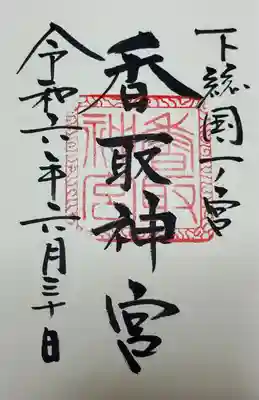 下総国一ノ宮
香取神宮
令和六年六月三十日